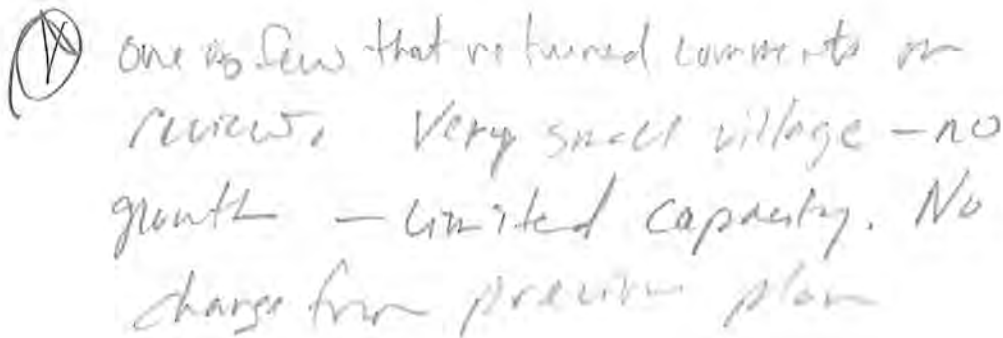 one of few that returned comments on
review. Very small village - no
growth - limited capacity. No
change from previous plan